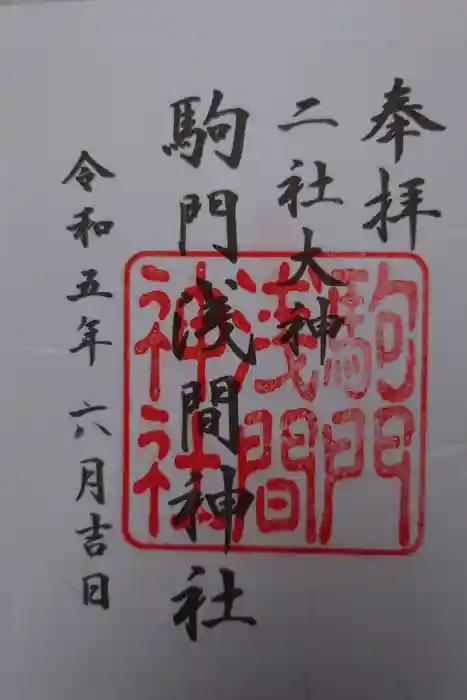 奉拝
二社大神
駒門浅間神社
令和五年 六月吉日
駒門
浅間
神社